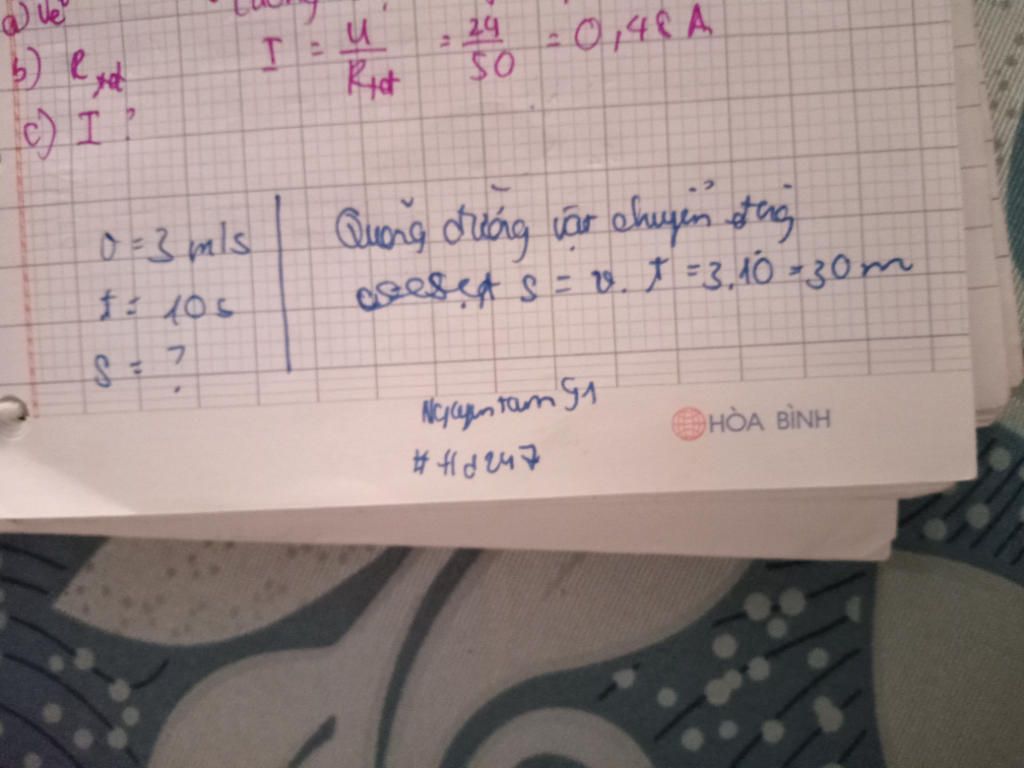 a) Vẽ
b) Rtđ
I = U/Rtđ = 24/50 = 0,48 A
c) I ?
v = 3 m/s
t = 10s
s = ?
Quãng đường vật chuyển động
s = v. t = 3.10 = 30 m
Nguyentam91
#Hd247
HÒA BÌNH